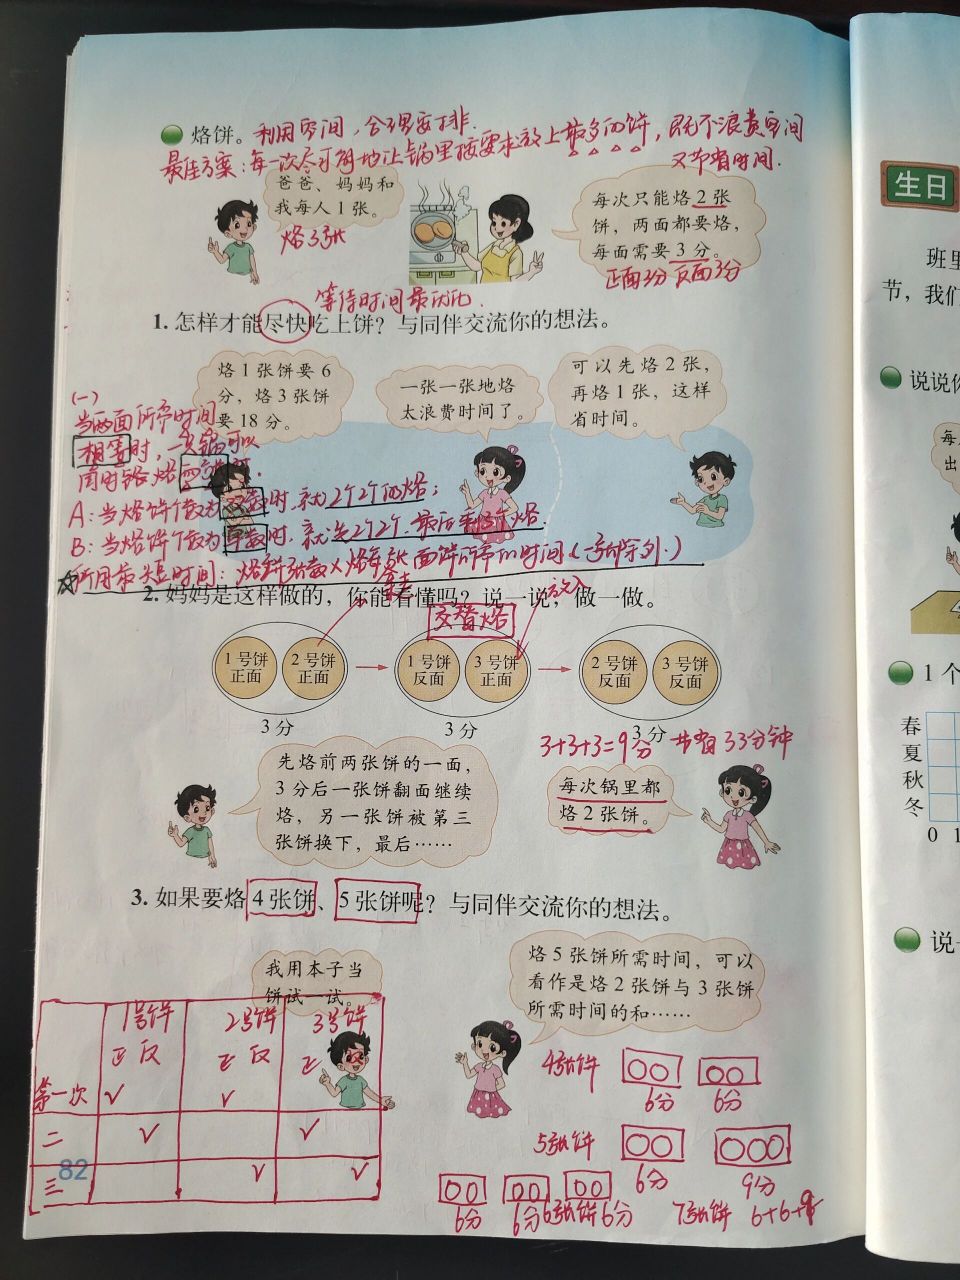 烙饼。利用空间，合理安排
最佳方案：每一次尽可能地让锅里按要求放上最多的饼，既不浪费空间
又节省时间.
爸爸、妈妈和
我每人1张。
烙3张
每次只能烙2张
饼，两面都要烙，
每面需要3分。
正面3分 反面3分
等待时间最优化.
1. 怎样才能尽快吃上饼？与同伴交流你的想法。
烙1张饼要6
分，烙3张饼
要18分。
一张一张地烙
太浪费时间了。
可以先烙2张，
再烙1张，这样
省时间。
(一)
当两面所需时间
相等时，一只锅可以
同时烙
A：当烙饼个数为双数时，就2个2个的烙；
B：当烙饼个数为单数时，就先2个2个，最后3个烙.
所用最短时间：烙饼张数×烙每张面饼所需的时间（1张除外.）
2. 妈妈是这样做的，你能看懂吗？说一说，做一做。
拿走
放入
交替烙
1号饼
正面
2号饼
正面
1号饼
反面
3号饼
正面
2号饼
反面
3号饼
反面
3分
3分
3分
3+3+3=9分 节省33分钟
先烙前两张饼的一面，
3分后一张饼翻面继续
烙，另一张饼被第三
张饼换下，最后……
每次锅里都
烙2张饼。
3. 如果要烙4张饼、5张饼呢？与同伴交流你的想法。
我用本子当
饼试一试。
烙5张饼所需时间，可以
看作是烙2张饼与3张饼
所需时间的和……
1号饼 2号饼 3号饼
正 反 正 反 正 反
第一次 √ √
二 √ √
三 √ √
4张饼
6分 6分
5张饼
6分 9分
6分 6分 6张饼 6分
7张饼 6+6+9
82
生日
班里
节，我们
说说你
每
出
1个
春
夏
秋
冬
0 1
说一